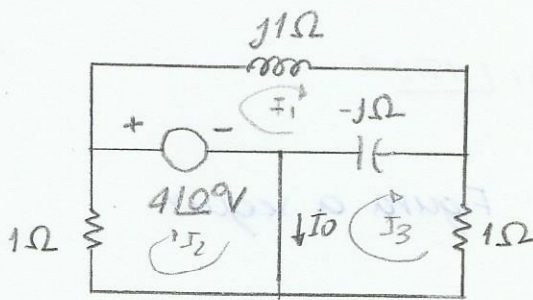 j1Ω
I1
-jΩ
+ -
4∠0°V
1Ω
I2
↓I0
I3
1Ω